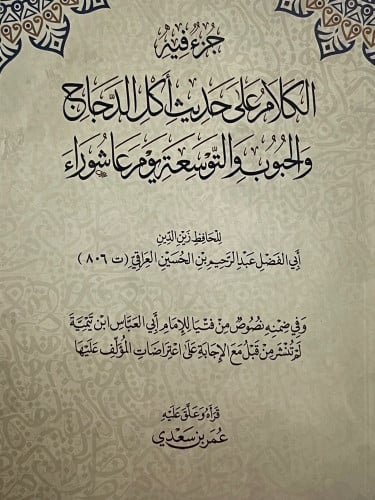 جُزْءٌ فِيهِ
الكَلَامُ عَلَى حَدِيثِ أَكْلِ الدَّجَاجِ
وَالحُبُوبِ وَالتَّوْسِعَةِ يَوْمَ عَاشُورَاءَ
لِلْحَافِظِ زَيْنِ الدِّينِ
أَبِي الفَضْلِ عَبْدِ الرَّحِيمِ بْنِ الحُسَيْنِ العِرَاقِيِّ (ت ٨٠٦)
وَفِي ضِمْنِهِ نُصُوصٌ مِنْ فُتْيَا لِلْإِمَامِ أَبِي العَبَّاسِ ابْنِ تَيْمِيَّةَ
لَمْ تُنْشَرْ مِنْ قَبْلُ مَعَ الإِجَابَةِ عَلَى اعْتِرَاضَاتِ المُؤَلِّفِ عَلَيْهَا
قَرَأَهُ وَعَلَّقَ عَلَيْهِ
عُمَرُ بْنُ سَعْدِي